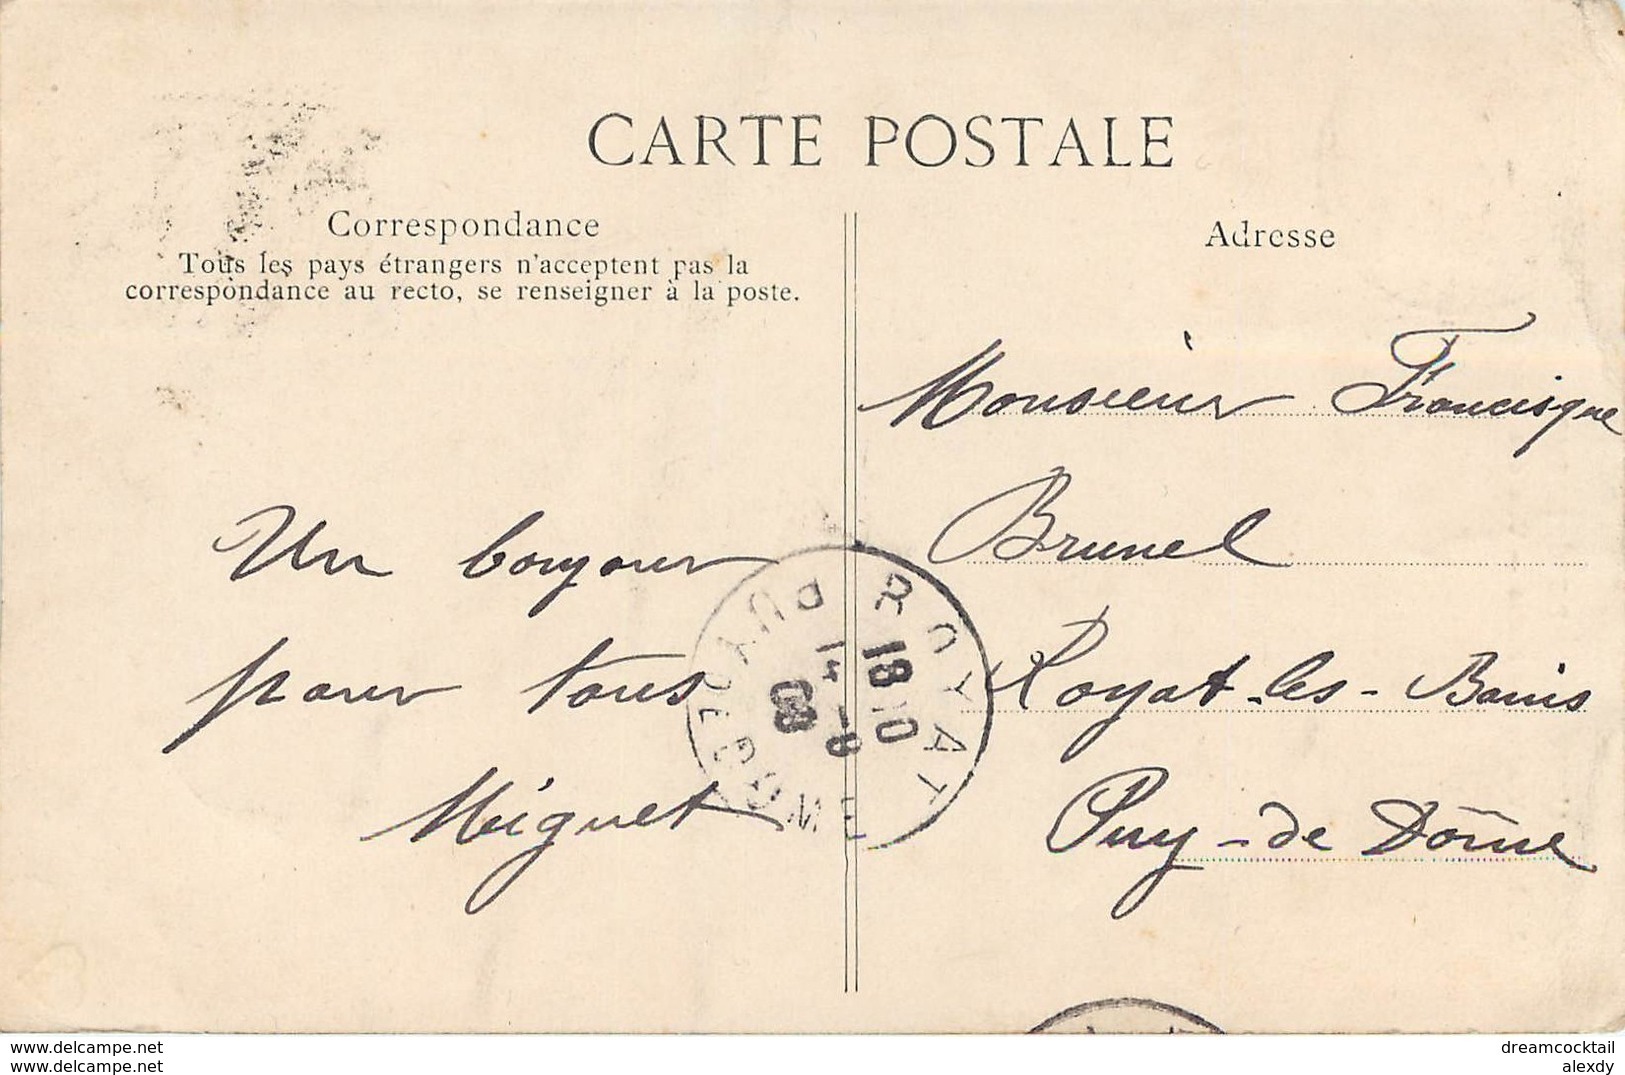 CARTE POSTALE
Correspondance
Tous les pays étrangers n'acceptent pas la
correspondance au recto, se renseigner à la poste.
Adresse
Monsieur Francisque
Brunel
Royat-les-Bains
Puy-de Dôme
Un bonjour
pour tous
Miguet
ROYAT
PUY DE DOME
18 10
14 -8
08
www.delcampe.net
www.delcampe.net
dreamcocktail
alexdy